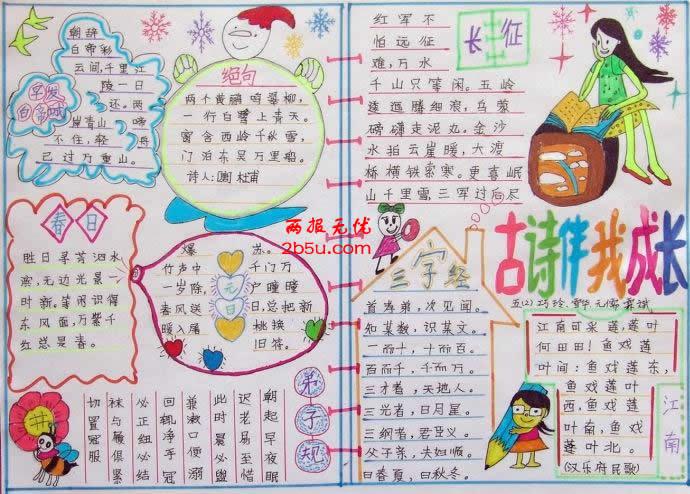 朝辞
白帝彩
云间,千里江
陵一日
还。两
岸青山
不住,轻舟
已过万重山。
早发
白帝城
绝句
两个黄鹂鸣翠柳,
一行白鹭上青天。
窗含西岭千秋雪,
门泊东吴万里船。
诗人:[唐]杜甫
春日
胜日寻芳泗水
滨,无边光景一
时新。等闲识得
东风面,万紫千
红总是春。
两报无优
2b5u.com
元日
爆
竹声中
一岁除,
春风送
暖入屠
苏。
千门万
户曈曈
日,总把新
桃换
旧符。
弟子规
朝起早夜眠
老易至惜
此时晨必盥
兼漱口便溺
回辄净手冠
必正纽必结
袜与履俱紧
切置冠服
长征
红军不
怕远征
难,万水
千山只等闲。五岭
逶迤腾细浪,乌蒙
磅礴走泥丸。金沙
水拍云崖暖,大渡
桥横铁索寒。更喜岷
山千里雪,三军过后尽
古诗伴我成长
三字经
首孝弟,次见闻。
知某数,识某文。
一而十,十而百。
百而千,千而万。
三才者,天地人。
三光者,日月星。
三纲者,君臣义。
父子亲,夫妇顺。
曰春夏,曰秋冬。
江南可采莲,莲叶
何田田!鱼戏莲
叶间:鱼戏莲东,
鱼戏莲叶
西,鱼戏莲
叶南,鱼戏
莲叶北。
(汉乐府民歌)
江南